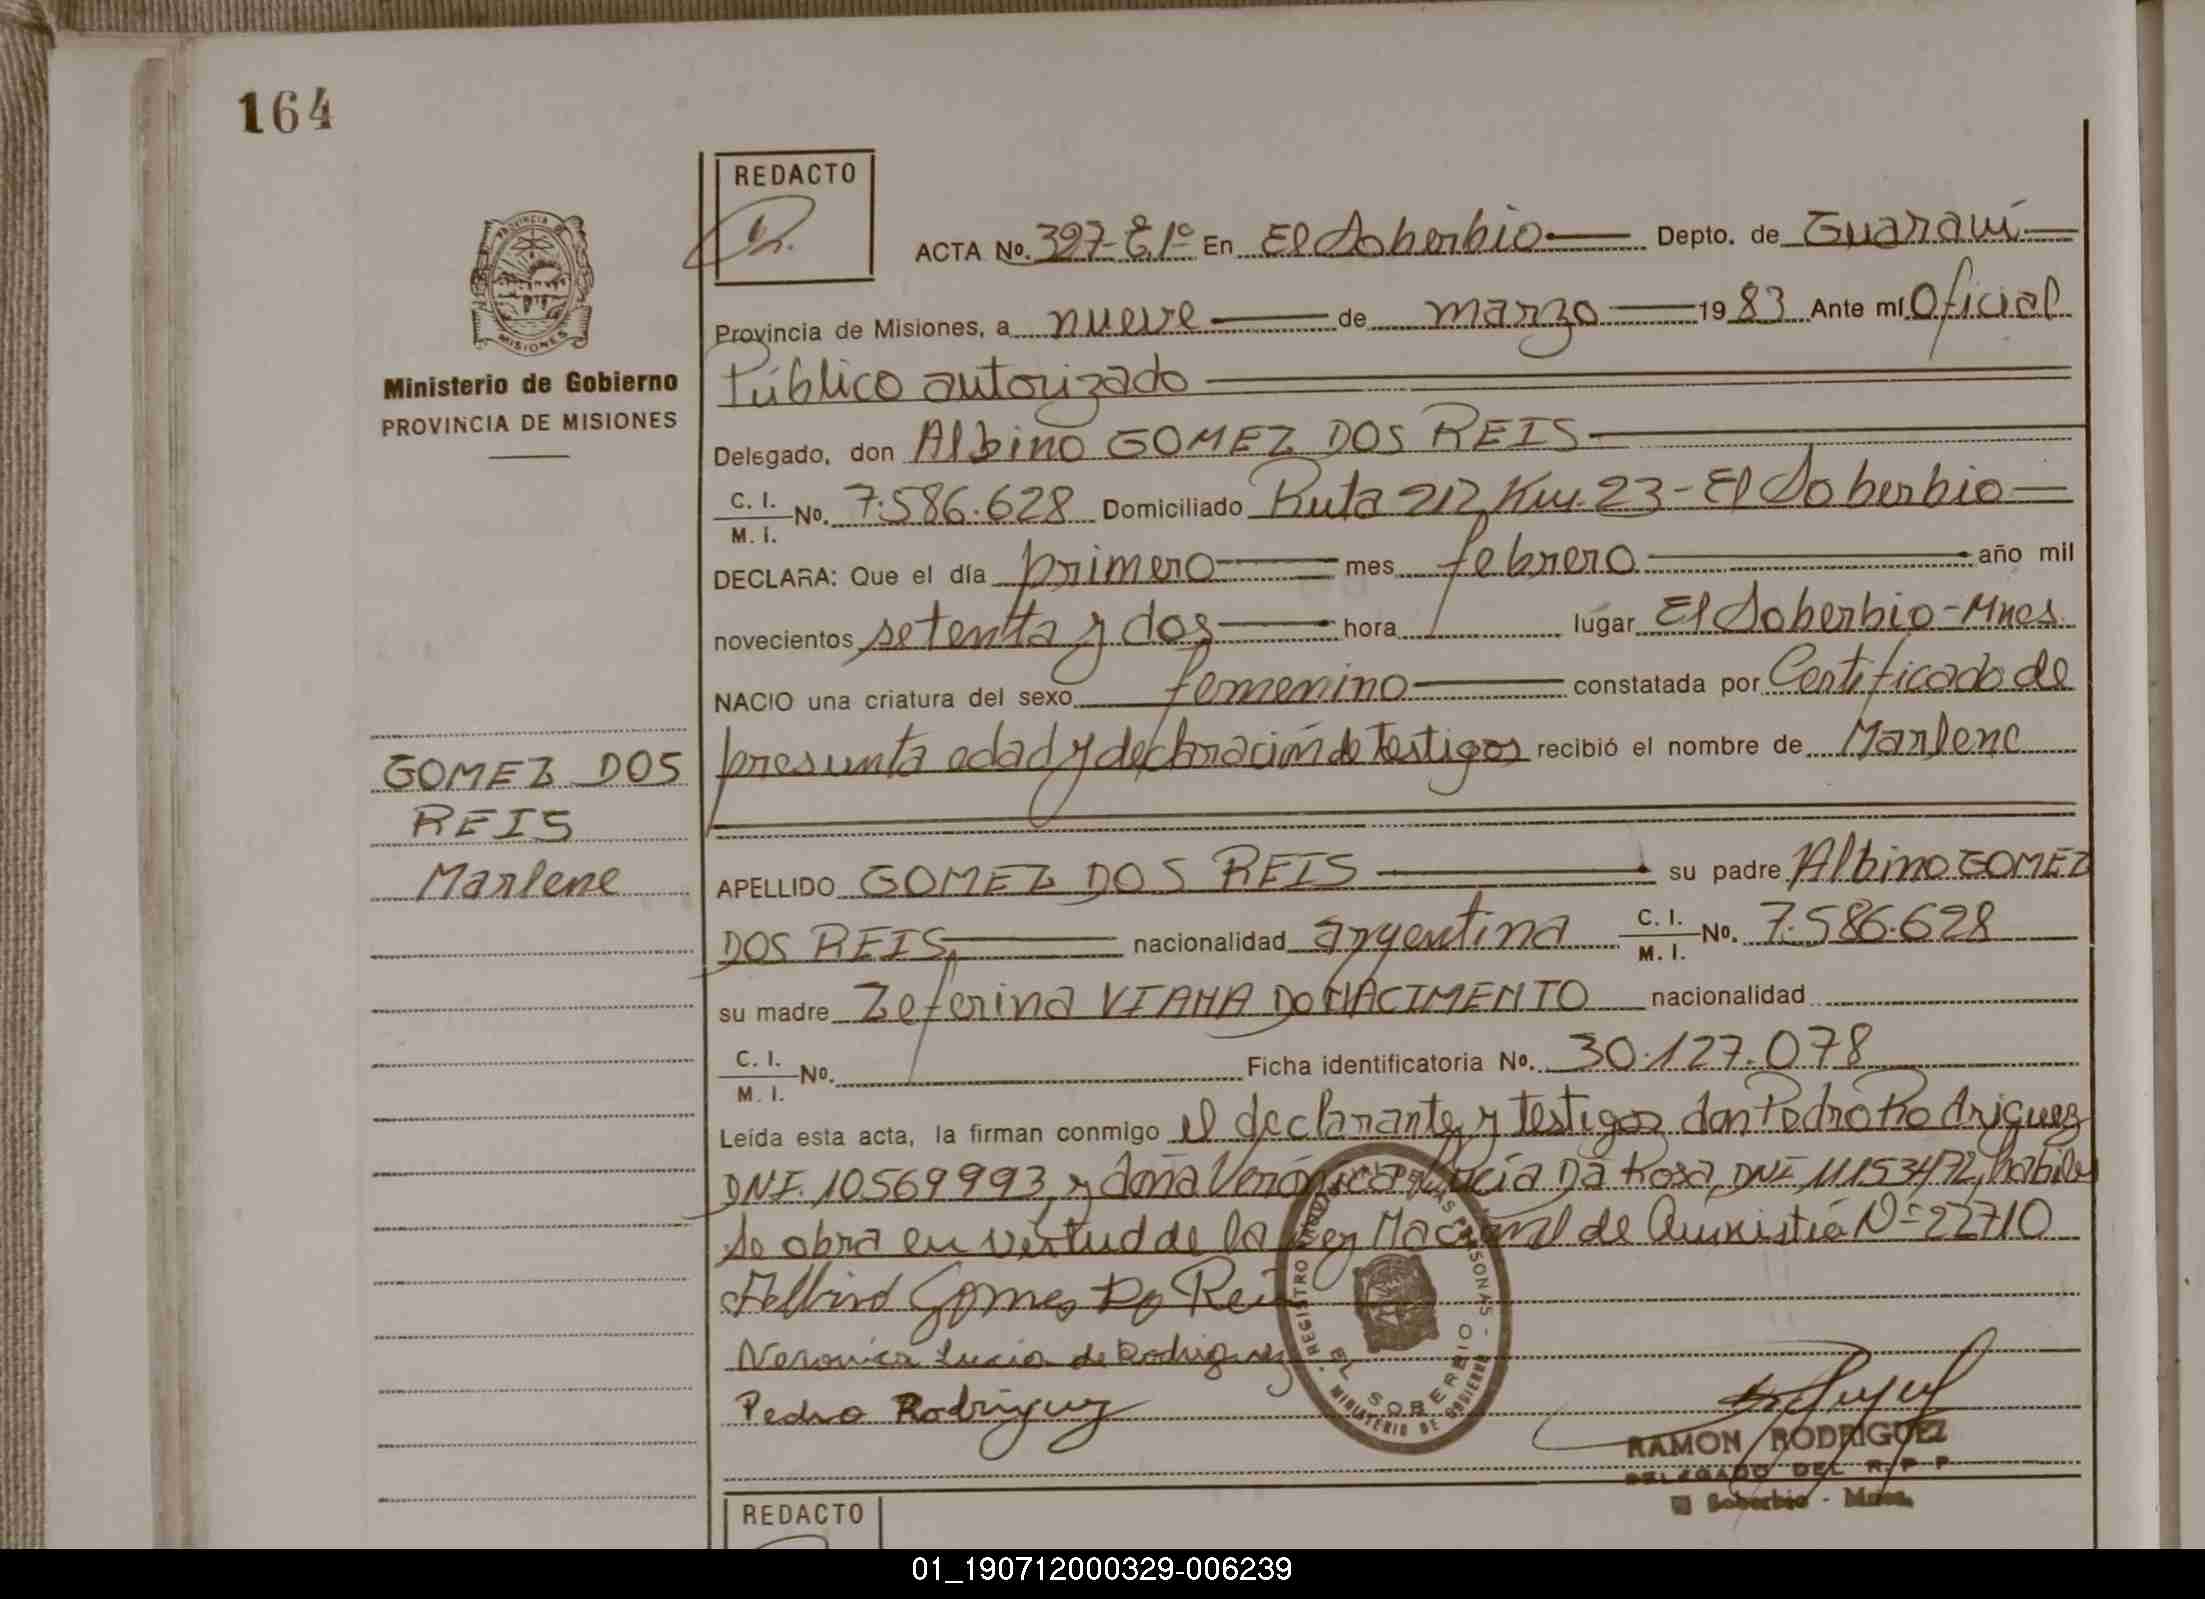 164
REDACTO
ACTA No. 397-E1º En El Soberbio Depto. de Guaraní
Provincia de Misiones, a nueve de marzo 1983 Ante mí Oficial
Público autorizado
Delegado, don Albino GOMEZ DOS REIS
C. I.
M. I.
No. 7.586.628 Domiciliado Ruta 212 Km. 23 - El Soberbio
DECLARA: Que el día primero mes febrero año mil
novecientos setenta y dos hora lugar El Soberbio - Mnes
NACIO una criatura del sexo femenino constatada por Certificado de
presunta edad y declaración de testigos recibió el nombre de Marlene
APELLIDO GOMEZ DOS REIS su padre Albino GOMEZ
DOS REIS, nacionalidad argentina C. I. M. I. No. 7.586.628
su madre Zeferina VIANA DO NACIMENTO nacionalidad
C. I.
M. I.
No. Ficha identificatoria No. 30.127.078
Leída esta acta, la firman conmigo el declarante y testigos don Pedro Rodriguez
DNI. 10569993, y doña Verónica Lucía Da Rosa, DNI 11153472, habiles
Se obra en virtud de la Ley Nacional de Amnistía Nº 22710
Albino Gomes Do Rei
Veronica Lucia de Rodriguez
Pedro Rodriguez
REGISTRO PROVINCIAL DE LAS PERSONAS - MINISTERIO DE GOBIERNO
EL SOBERBIO
RAMON RODRIGUEZ
DELEGADO DEL R. P. P
El Soberbio - Mnes.
PROVINCIA
MISIONES
Ministerio de Gobierno
PROVINCIA DE MISIONES
GOMEZ DOS
REIS
Marlene
REDACTO
01_190712000329-006239